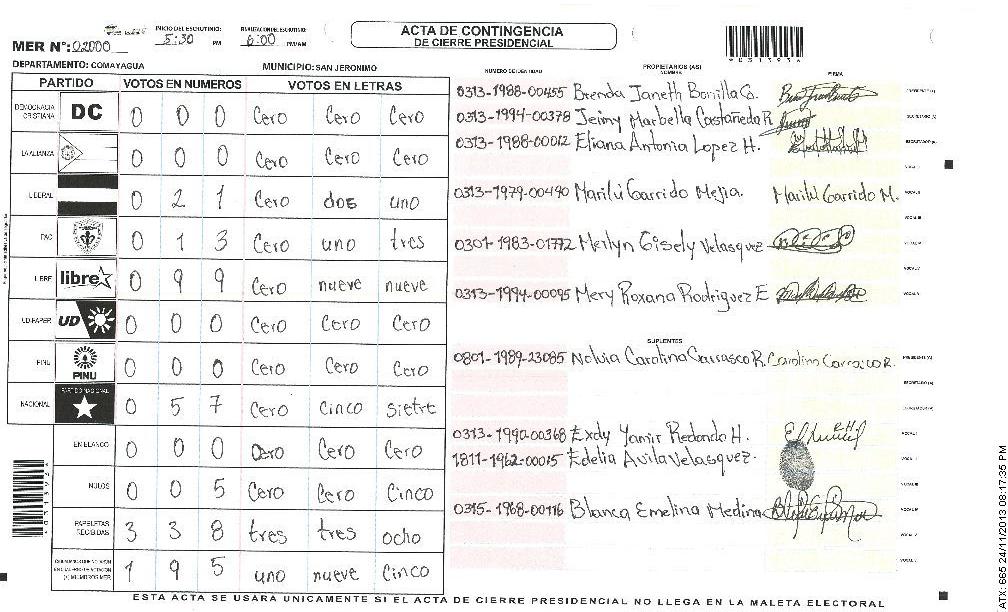 INICIO DEL ESCRUTINIO: FINALIZACION DEL ESCRUTINIO:
MER N°: 02000 5:30 PM 6:00 PM/AM
ACTA DE CONTINGENCIA
DE CIERRE PRESIDENCIAL
DEPARTAMENTO: COMAYAGUA MUNICIPIO: SAN JERONIMO
PARTIDO VOTOS EN NUMEROS VOTOS EN LETRAS
DEMOCRACIA CRISTIANA DC 0 0 0 Cero Cero Cero
LA ALIANZA 0 0 0 Cero Cero Cero
LIBERAL 0 2 1 Cero dos uno
PAC 0 1 3 Cero uno tres
LIBRE libre 0 9 9 Cero nueve nueve
UD-FAPER UD 0 0 0 Cero Cero Cero
PINU PINU 0 0 0 Cero Cero Cero
NACIONAL PARTIDO NACIONAL 0 5 7 Cero cinco sietre
EN BLANCO 0 0 0 Cero Cero Cero
NULOS 0 0 5 Cero Cero Cinco
PAPELETAS RECIBIDAS 3 3 8 tres tres ocho
1 9 5 uno nueve Cinco
NUMERO DE IDENTIDAD PROPIETARIOS (AS) NOMBRE FIRMA
0313-1988-00455 Brenda Janeth Bonilla G.
0313-1994-00378 Jeimy Marbella Castañeda R
0313-1988-00012 Eliana Antonia Lopez H.
0313-1979-00490 Marilú Garrido Mejia. Marilú Garrido M.
0301-1983-01772 Merlyn Gisely Velasquez
0313-1994-00095 Mery Roxana Rodriguez E
SUPLENTES
0801-1989-23085 Nolvia Carolina Carrasco R. Carolina Carrasco R.
0313-1990-00368 Exdy Yamir Redondo H.
1811-1962-00015 Edelia Avila Velasquez.
0315-1968-00116 Blanca Emelina Medina
ESTA ACTA SE USARA UNICAMENTE SI EL ACTA DE CIERRE PRESIDENCIAL NO LLEGA EN LA MALETA ELECTORAL
ATX 665 24/11/2013 08:17:35 PM